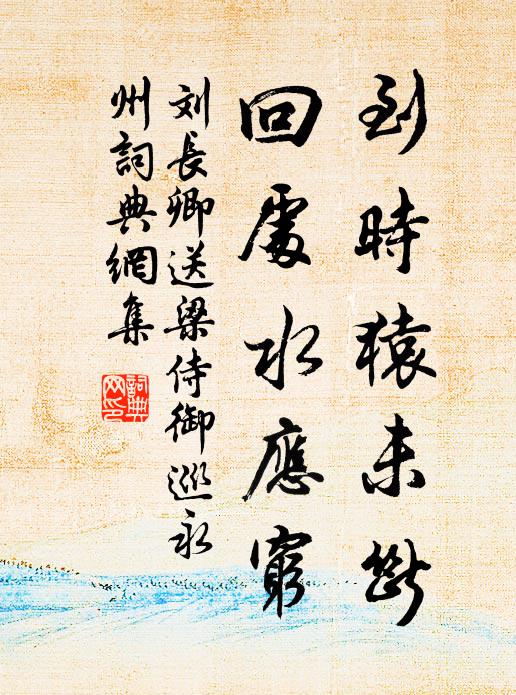 到時猿未斷
回處水應窮
刘長卿送梁侍御巡永
州詞典網集
詞典
网印